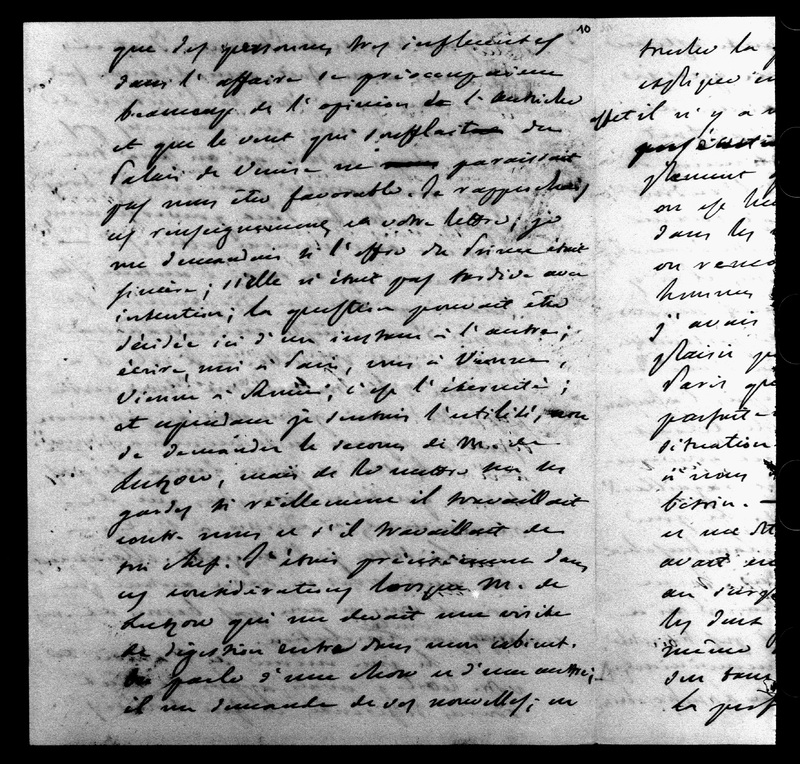 10
que des personnes très influentes
dans l'affaire se préoccupaient
beaucoup de l'opinion de l'Autriche
et que le vent qui soufflait du
Palais de Venise ne paraissait
pas nous être favorable. Je rapprochais
ces renseignements et votre lettre; je
me demandais si l'offre du Prince était
sincère; s'elle n'était pas tardive avec
intention; la question pouvait être
décidée ici d'un instant à l'autre;
écrire moi à Paris, vous à Vienne,
Vienne à Rome, c'est l'éternité;
et cependant je sentais l'utilité, non
de demander le secours de M. de
Lutzow, mais de le mettre sur ses
gardes si réellement il travaillait
contre nous et s'il travaillait de
son chef. J'étais précisément dans
ces considérations lorsque M. de
Lutzow qui me devait une visite
de digestion entre dans mon cabinet.
On parle d'une chose et d'une autre;
il me demande de vos nouvelles; en
triche la
expliquer en
effet il n'y a
on est
dans les
on renco
hommes
j'avais
plaisir
Paris que
parfait
situation
à nous
et me dit
avait en
au
les deux
même
sur tous
la